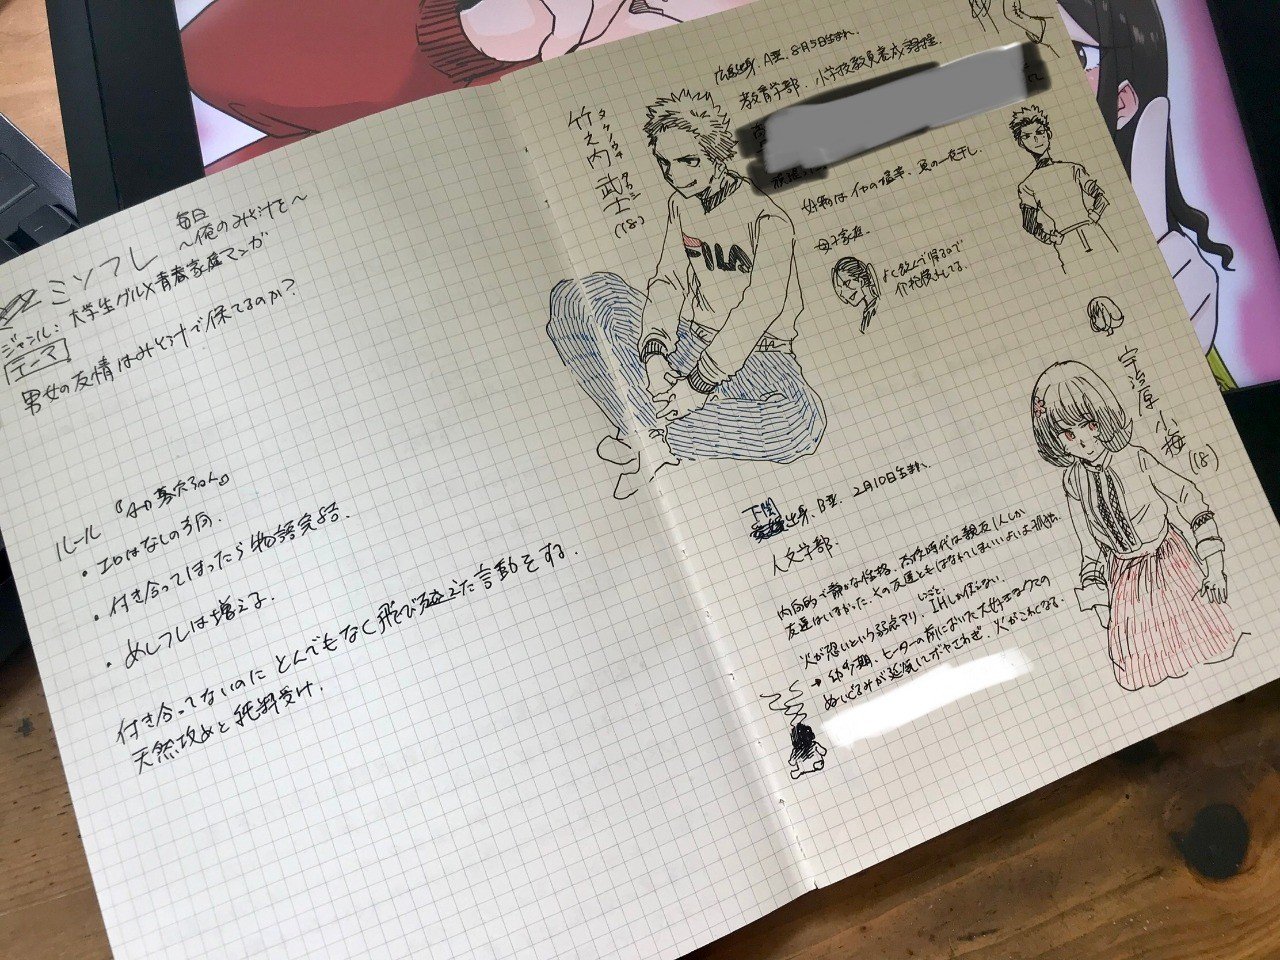 ミソフレ
毎日
～俺のみそ汁を～
ジャンル：大学生グルメ青春家庭マンガ
テーマ
男女の友情はみそ汁で保てるのか？
ルール
・エロはなしの方向.
・付き合ってしまったら物語完結.
・めしフレは増える.
付き合ってないのにとんでもなく飛び越えた言動をする.
天然攻めと純粋受け.
竹之内 武士
タケノウチ タケシ
(18)
広島出身、A型、8月5日生まれ.
教育学部、小学校教員養成課程
好物はイカの塩辛、魚の一夜干し.
母子家庭.
よく飲んで帰るので
介抱慣れしてる.
FILA
宇治原 小梅
(18)
下関
出身、B型、2月10日生まれ.
人文学部.
内向的で静かな性格、高校時代は親友1人しか
友達はいなかった.その友達ともはなれてしまいいよいよ孤独.
火が恐いという弱点アリ、IHしか使えない.
→幼少期、ヒーターの前においた大好きなクマの
ぬいぐるみが延焼してボヤさわぎ、火がこわくなる.